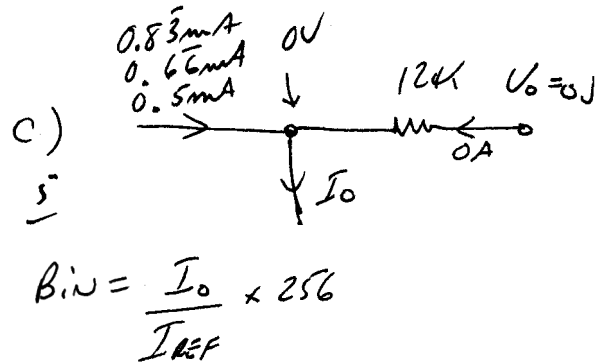 0.83mA
0.66mA
0.5mA
0V
12K
V₀ = 0V
C)
5
0A
I₀
BIN = I₀ / I_REF × 256